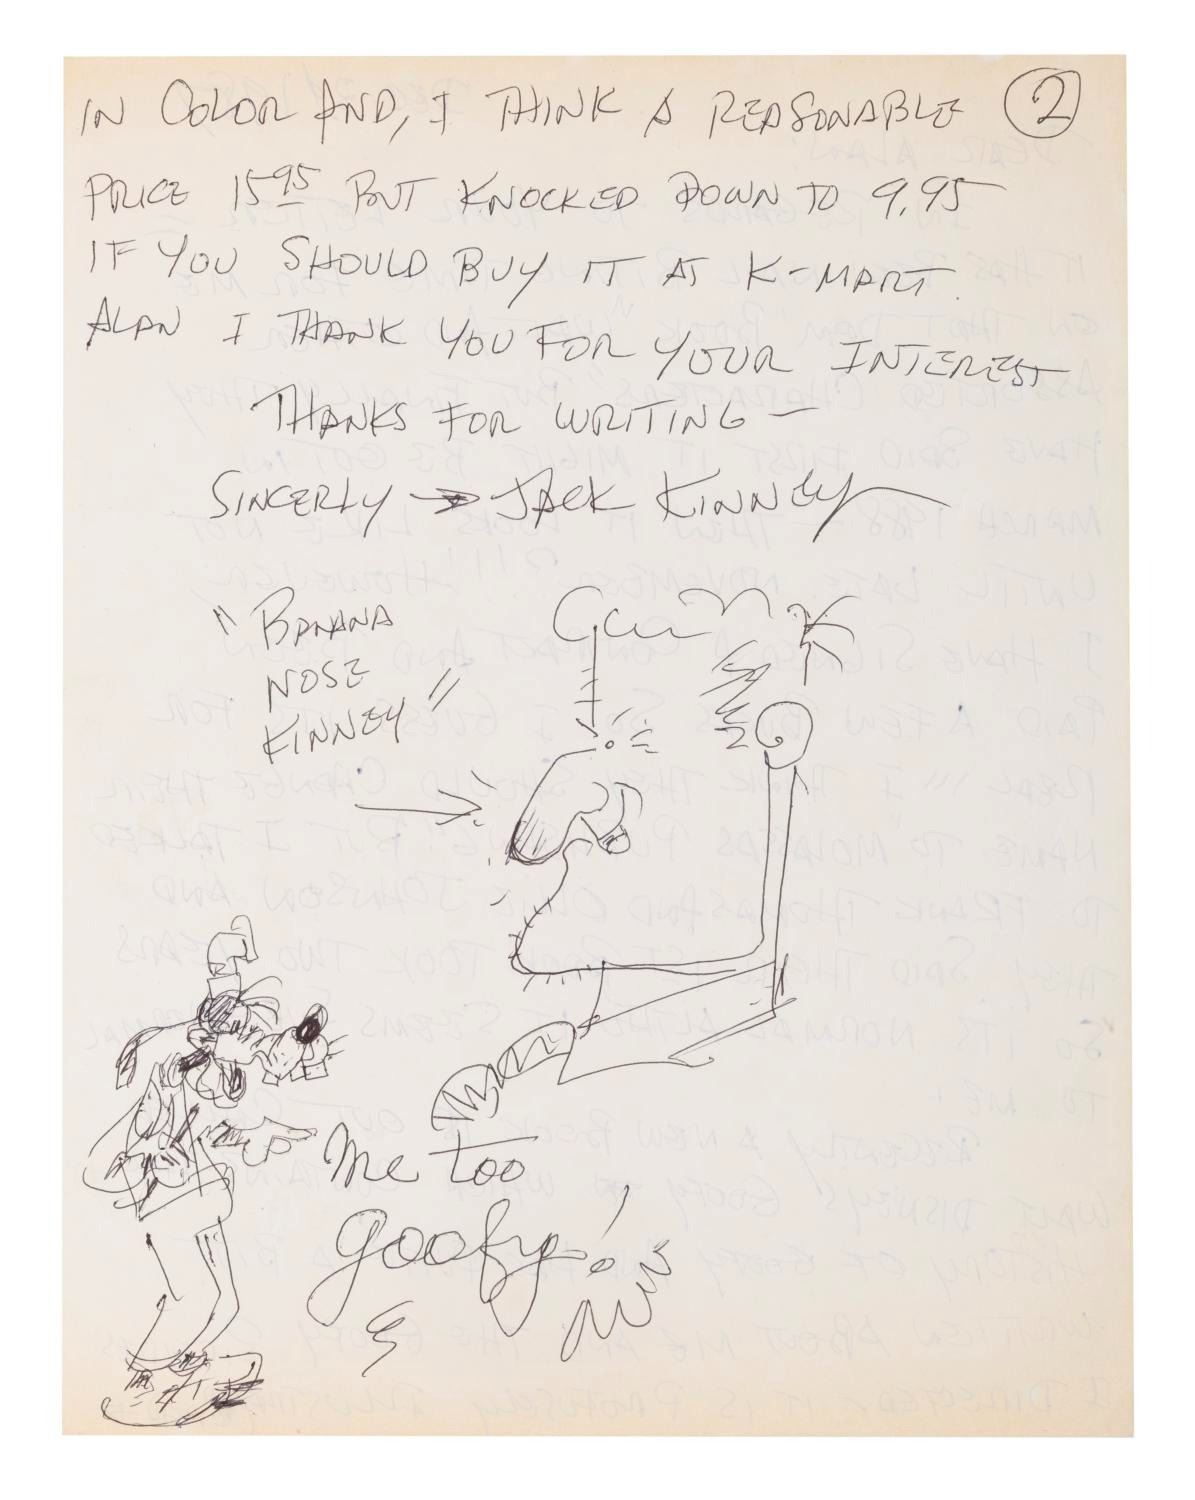 IN COLOR AND, I THINK A REASONABLE 2
PRICE 15⁹⁵ BUT KNOCKED DOWN TO 9.95
IF YOU SHOULD BUY IT AT K-MART.
ALAN I THANK YOU FOR YOUR INTEREST
THANKS FOR WRITING —
SINCERLY → JACK KINNEY
"BANANA
NOSE
KINNEY"
Me too
goofy!